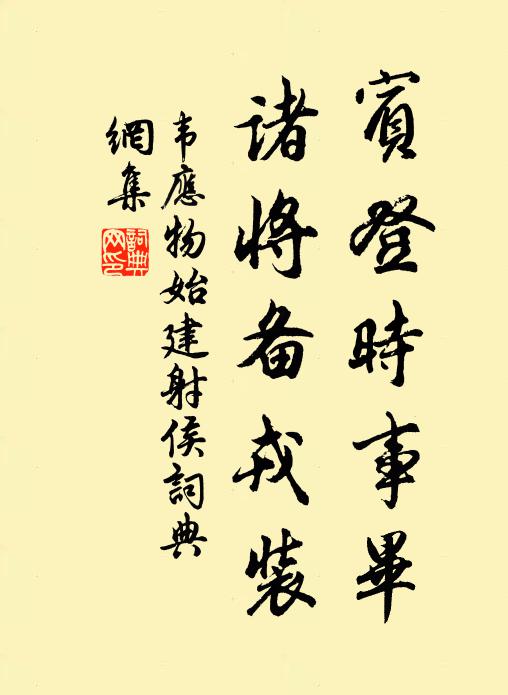 賓登時事畢
諸將备戎裝
韦應物始建射侯詞典
網集
詞典
网印